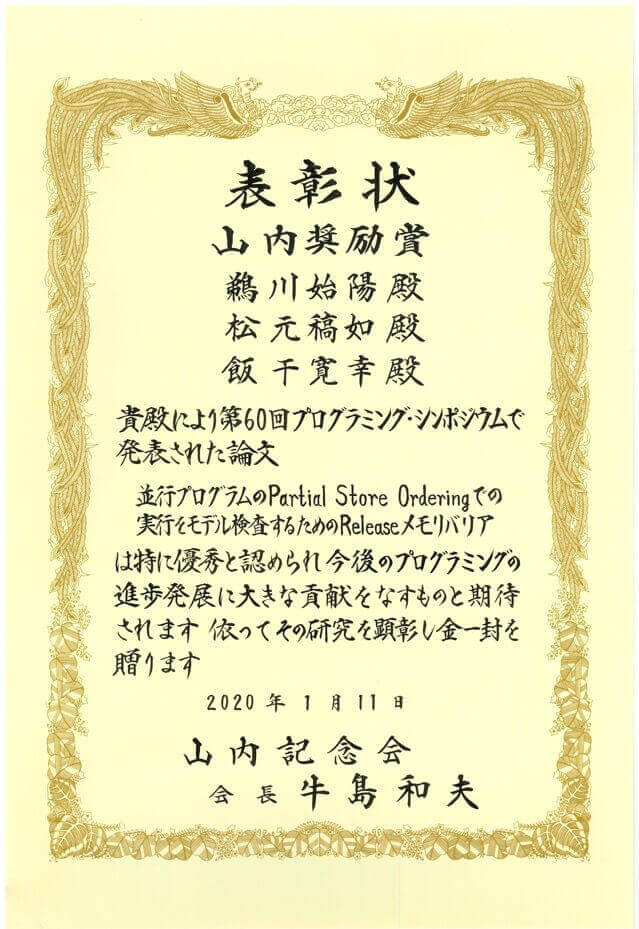 表彰状
山内奨励賞
鵜川始陽殿
松元稿如殿
飯干寛幸殿
貴殿により第60回プログラミング・シンポジウムで
発表された論文
並行プログラムのPartial Store Orderingでの
実行をモデル検査するためのReleaseメモリバリア
は特に優秀と認められ今後のプログラミングの
進歩発展に大きな貢献をなすものと期待
されます 依ってその研究を顕彰し金一封を
贈ります
2020年1月11日
山内記念会
会長 牛島和夫